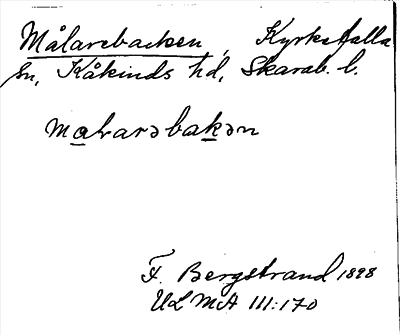 Målarebacken, Kyrkefalla
sn, Kåkinds hd, Skarab. l.
målarəbakən
F. Bergstrand 1898
ULMA 111:170